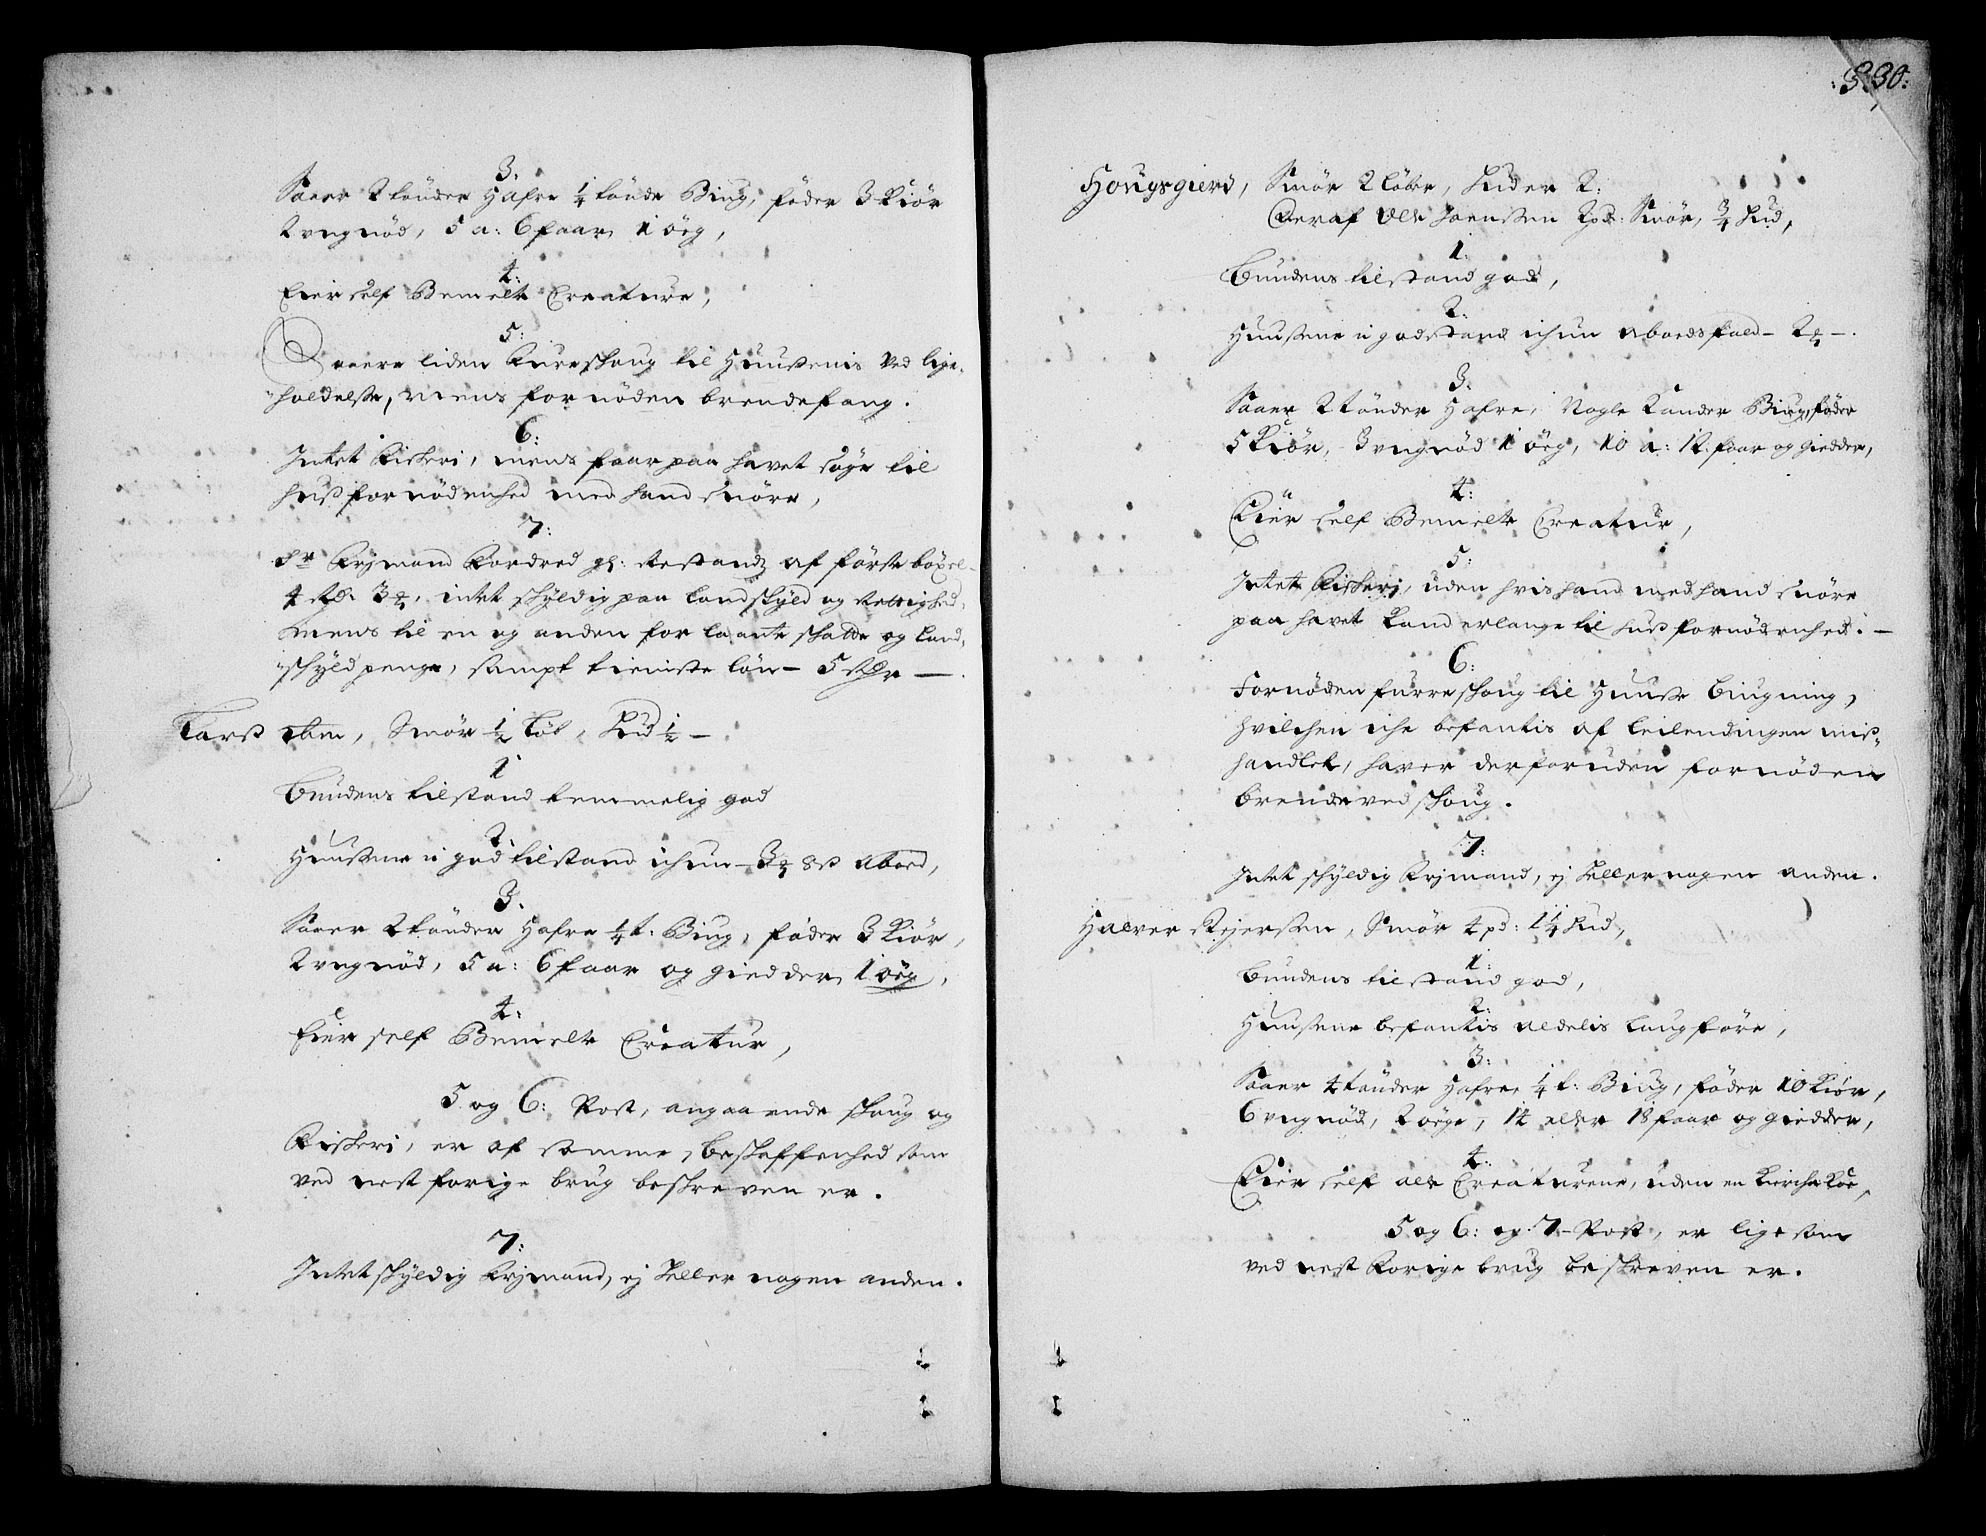 3.
Saaer 2 tønder Hafre 1/4 tønde Biug, føder 3 Kiør
2 ungnød, 5 a: 6 faar, 1 øeg,
4:
Eier self Bemelte Creature,
5:
liden furreskoug til Huusenis ved lige-
holdelsse, mens fornøden brendefang.
6:
Intet fiskeri, mens faar paa havet søge til
huss fornødenhed med hand snøre,
7:
Sr Rejmand restandz af første böxel
4 Rdr 3 intet skyldig paa landskyld og Rettighed,
mens til en og anden for laante skatte og land-
skyld penge, sampt tieniste løn - 5 rdr -
Larss ibm, Smør 1/2 Løb, Hud 1/2 -
1
Bundens tilstand temmelig god
2.
Huussene i god tilstand ichun - 3 8 ß Aboed,
3.
Saaer 2 tønder Hafre 1/4 t: Biug, føder 3 Kiør,
2 ungnød, 5 a: 6 faar og giedder, 1 øeg,
4:
Eier self Bemelte Creatur,
5 og 6: Post, angaaende skoug og
fiskeri, er af samme beskaffenhed som
ved nest forige brug beskreven er.
7:
Intet skyldig Rejmand, ej heller nogen anden.
330:
Hougsgierd, Smør 2 Løber, Huder 2:
Deraf Ole Joenssen 2 pd: Smør, 3/4 Hud,
1.
Bundens tilstand god,
2:
Huussene i god stand ichun aboedsfald - 2 -
3.
Saaer 2 tønder Hafre, Nogle Kander Biug, føder
5 Kiør, 3 ungnød 1 øeg, 10 a: 12 faar og giedder,
4:
Eier self Bemelte Creatur,
5:
Intet fiskerj, uden hvis hand med hand snøre
paa havet kand erlange til huss fornødenhed. -
6:
Fornøden furreskoug til Huusse biugning,
hvilchen iche befantis af leilendingen miss-
handlet, haver derforuden fornøden
brendeved skoug.
7.
Intet skyldig Rejmand, ej heller nogen anden.
Halver Rejerssen, Smør 4 pd: 1 1/4 Hud,
1:
Bundens tilstand god,
2:
Huussene befantis aldelis laugføre,
3:
Saaer 4 tønder Hafre 1/4 t: Biug, føder 10 Kiør,
6 ungnød, 2 øege, 14 eller 18 faar og giedder,
4:
Eier self alle Creaturene, uden en Kierche Koe,
5 og 6: og 7 - Post, er lige som
ved nest forige brug beskreven er.